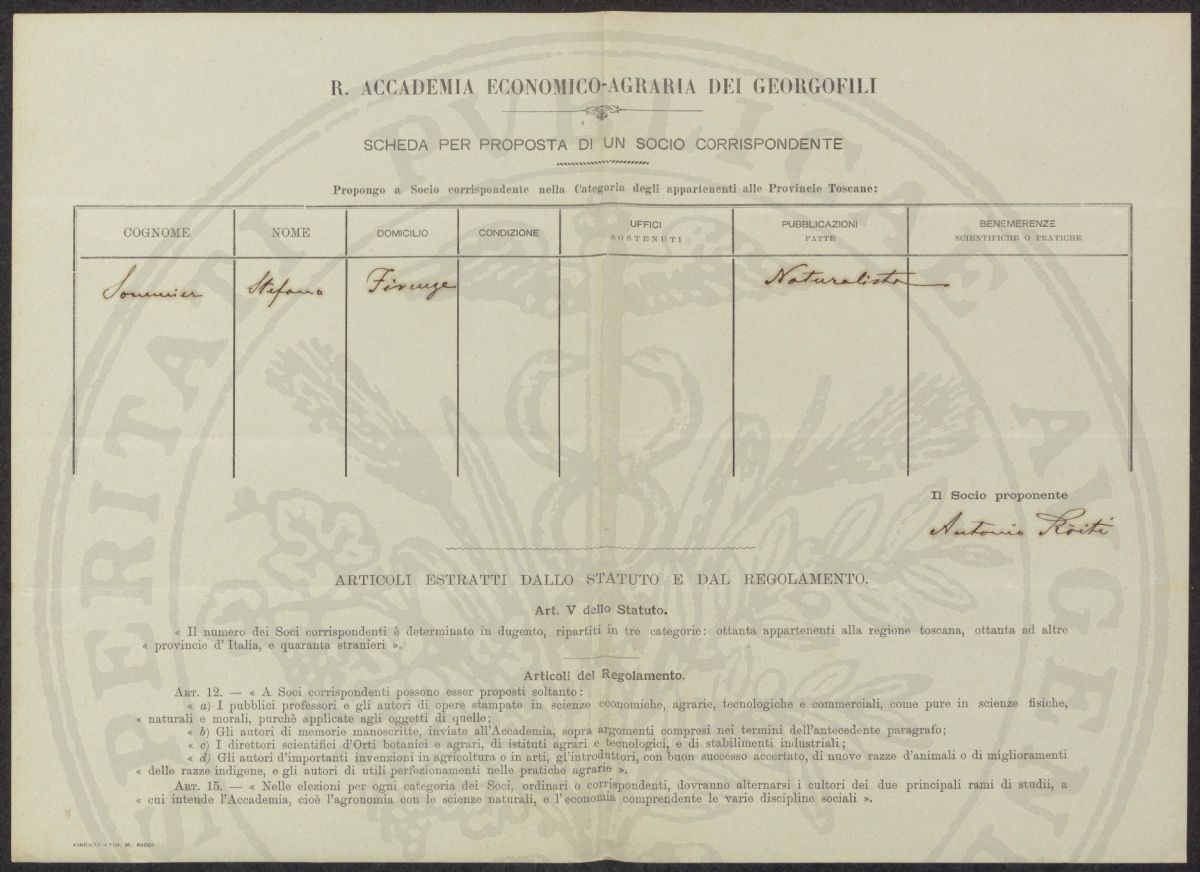 R. ACCADEMIA ECONOMICO-AGRARIA DEI GEORGOFILI
SCHEDA PER PROPOSTA DI UN SOCIO CORRISPONDENTE
Propongo a Socio corrispondente nella Categoria degli appartenenti alle Provincie Toscane:
COGNOME NOME DOMICILIO CONDIZIONE UFFICI SOSTENUTI PUBBLICAZIONI FATTE BENEMERENZE SCIENTIFICHE O PRATICHE
Sommier Stefano Firenze Naturalista
Il Socio proponente
Antonio Ròiti
ARTICOLI ESTRATTI DALLO STATUTO E DAL REGOLAMENTO.
Art. V dello Statuto.
« Il numero dei Soci corrispondenti è determinato in dugento, ripartiti in tre categorie: ottanta appartenenti alla regione toscana, ottanta ad altre
« provincie d'Italia, e quaranta stranieri ».
Articoli del Regolamento.
ART. 12. — « A Soci corrispondenti possono esser proposti soltanto:
« a) I pubblici professori e gli autori di opere stampate in scienze economiche, agrarie, tecnologiche e commerciali, come pure in scienze fisiche,
« naturali e morali, purchè applicate agli oggetti di quelle;
« b) Gli autori di memorie manoscritte, inviate all'Accademia, sopra argomenti compresi nei termini dell'antecedente paragrafo;
« c) I direttori scientifici d'Orti botanici e agrari, di istituti agrari e tecnologici, e di stabilimenti industriali;
« d) Gli autori d'importanti invenzioni in agricoltura o in arti, gl'introduttori, con buon successo accertato, di nuove razze d'animali o di miglioramenti
« delle razze indigene, e gli autori di utili perfezionamenti nelle pratiche agrarie ».
ART. 15. — « Nelle elezioni per ogni categoria dei Soci, ordinari o corrispondenti, dovranno alternarsi i cultori dei due principali rami di studii, a
« cui intende l'Accademia, cioè l'agronomia con le scienze naturali, e l'economia comprendente le varie discipline sociali ».
FIRENZE-TIP. M. RICCI
PROSPERITATI PUBLICAE AUGENDAE